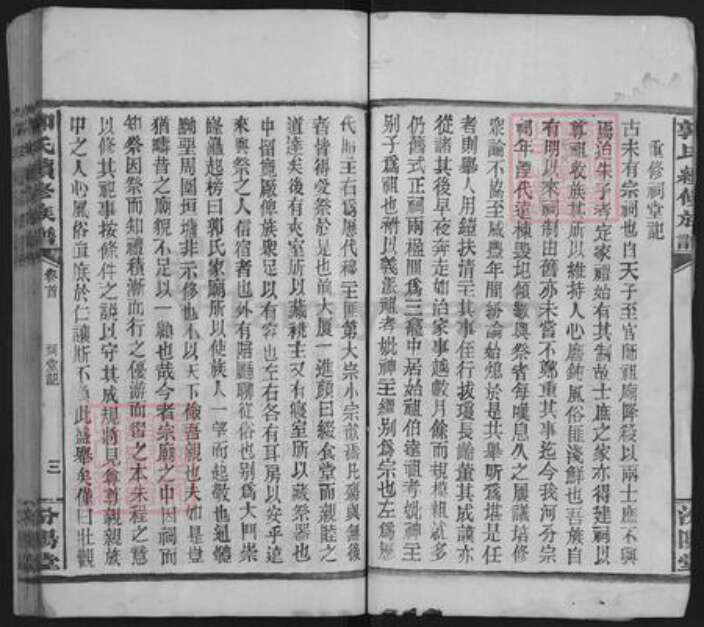 重修祠堂記
古未有宗祠也自天子至官師祖廟降殺以兩士庶不與
焉迨朱子者定家禮始有其制故士庶之家亦得建祠以
尊祖收族其所以維持人心磨鈍風俗匪淺鮮也吾族自
有明以來祠制由舊亦未嘗不鄭重其事迄今我河分宗
祠年湮代遠棟毀垣傾數與祭者每嘆息久之屢議培修
衆論不協至咸豐年間紛論始熄於是共舉昕爲堪是任
者則舉人用鎧扶清三其事侄行拔瓊長論董其成讓亦
從諸其後早夜奔走如治家事越數月餘而規模粗就多
仍舊式正祠兩楹間爲三龕中居始祖伯達祖考妣神主
別子爲祖也祔以義漾祖考妣神主繼別爲宗也左爲應
代厝主右爲歷代祧主匪第大宗小宗電禱比殤與無後
者情得受祭於是也前大厦一進顏曰綴食堂而親睦之
道達矣後有夾室所以藏祧主又有寢室所以藏祭器也
中捐寬廠俾族衆足以有容也左右各有耳房以安乎遠
來與祭之人信宿者也外有階廳聊從俗也別爲大門崇
隆矗起榜曰郭氏家廟所以使族人一望而起敬也週體
黝堊周圍垣墉非示修也不以天下儉吾親也夫如是豈
猶疇昔之廟貌不足以一顧也哉今者宗廟之中因祠而
知祭因祭而知禮積漸而行之優游而習之本朱程之意
以修其祀事按條件之議以守其成規將見尊尊親親族
中之人心風俗直底於仁讓斯不負此盛舉矣僅曰壯觀
郭氏續修族譜
卷首
祠堂記
三
汾陽堂
郭氏續修族譜
汾陽堂